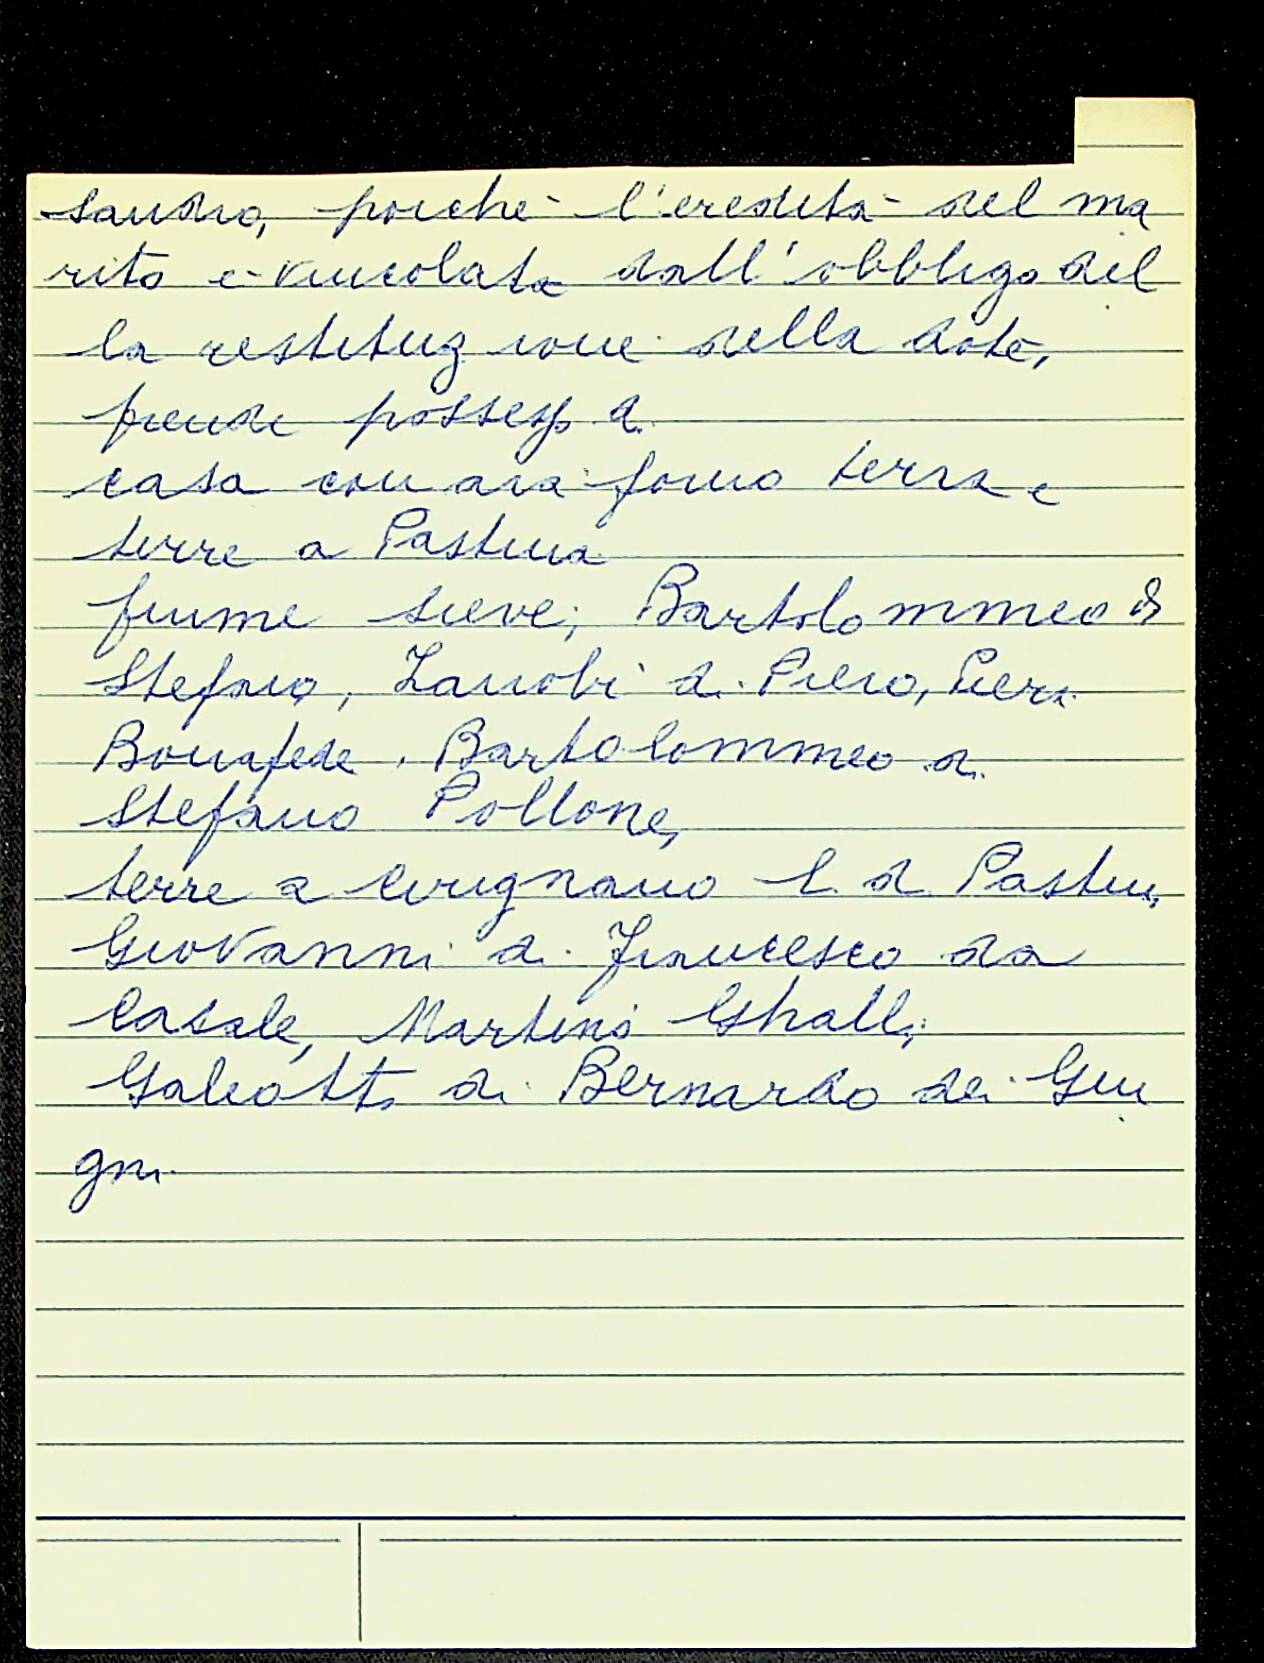 sandro, poichè l'eredità del ma
rito è vincolata dall'obbligo del
la restituzione della dote,
prende possesso di
casa con aia forno terra e
terre a Pastina
fiume Sieve, Bartolommeo di
Stefano, Zanobi di Piero, Piero
Bonafede, Bartolommeo di
Stefano Pollone,
terre a Cirignano l. d. Pastin,
Giovanni di Francesco da
Casale, Martino
Galeotto di Bernardo dei Giu
gni